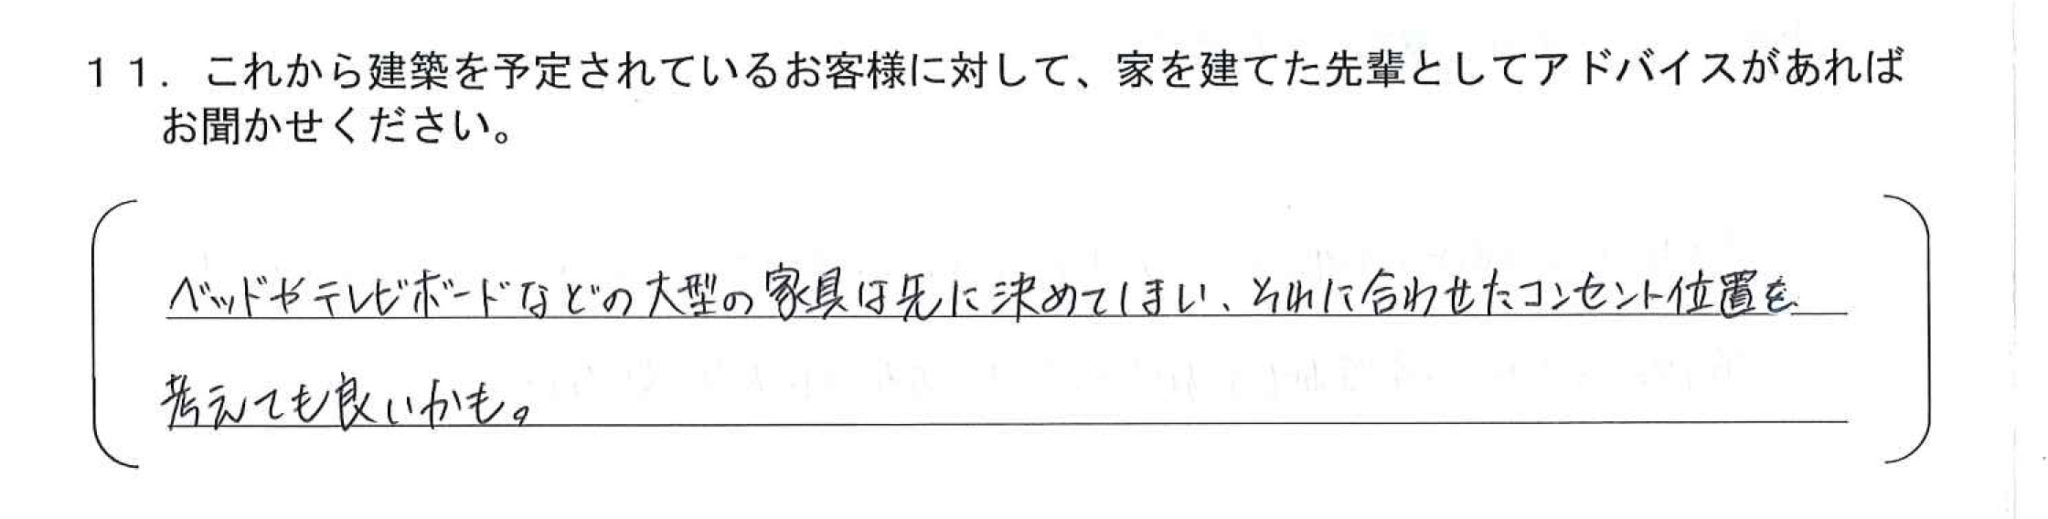 １１．これから建築を予定されているお客様に対して、家を建てた先輩としてアドバイスがあれば
お聞かせください。
ベッドやテレビボードなどの大型の家具は先に決めてしまい、それに合わせたコンセント位置を
考えても良いかも。